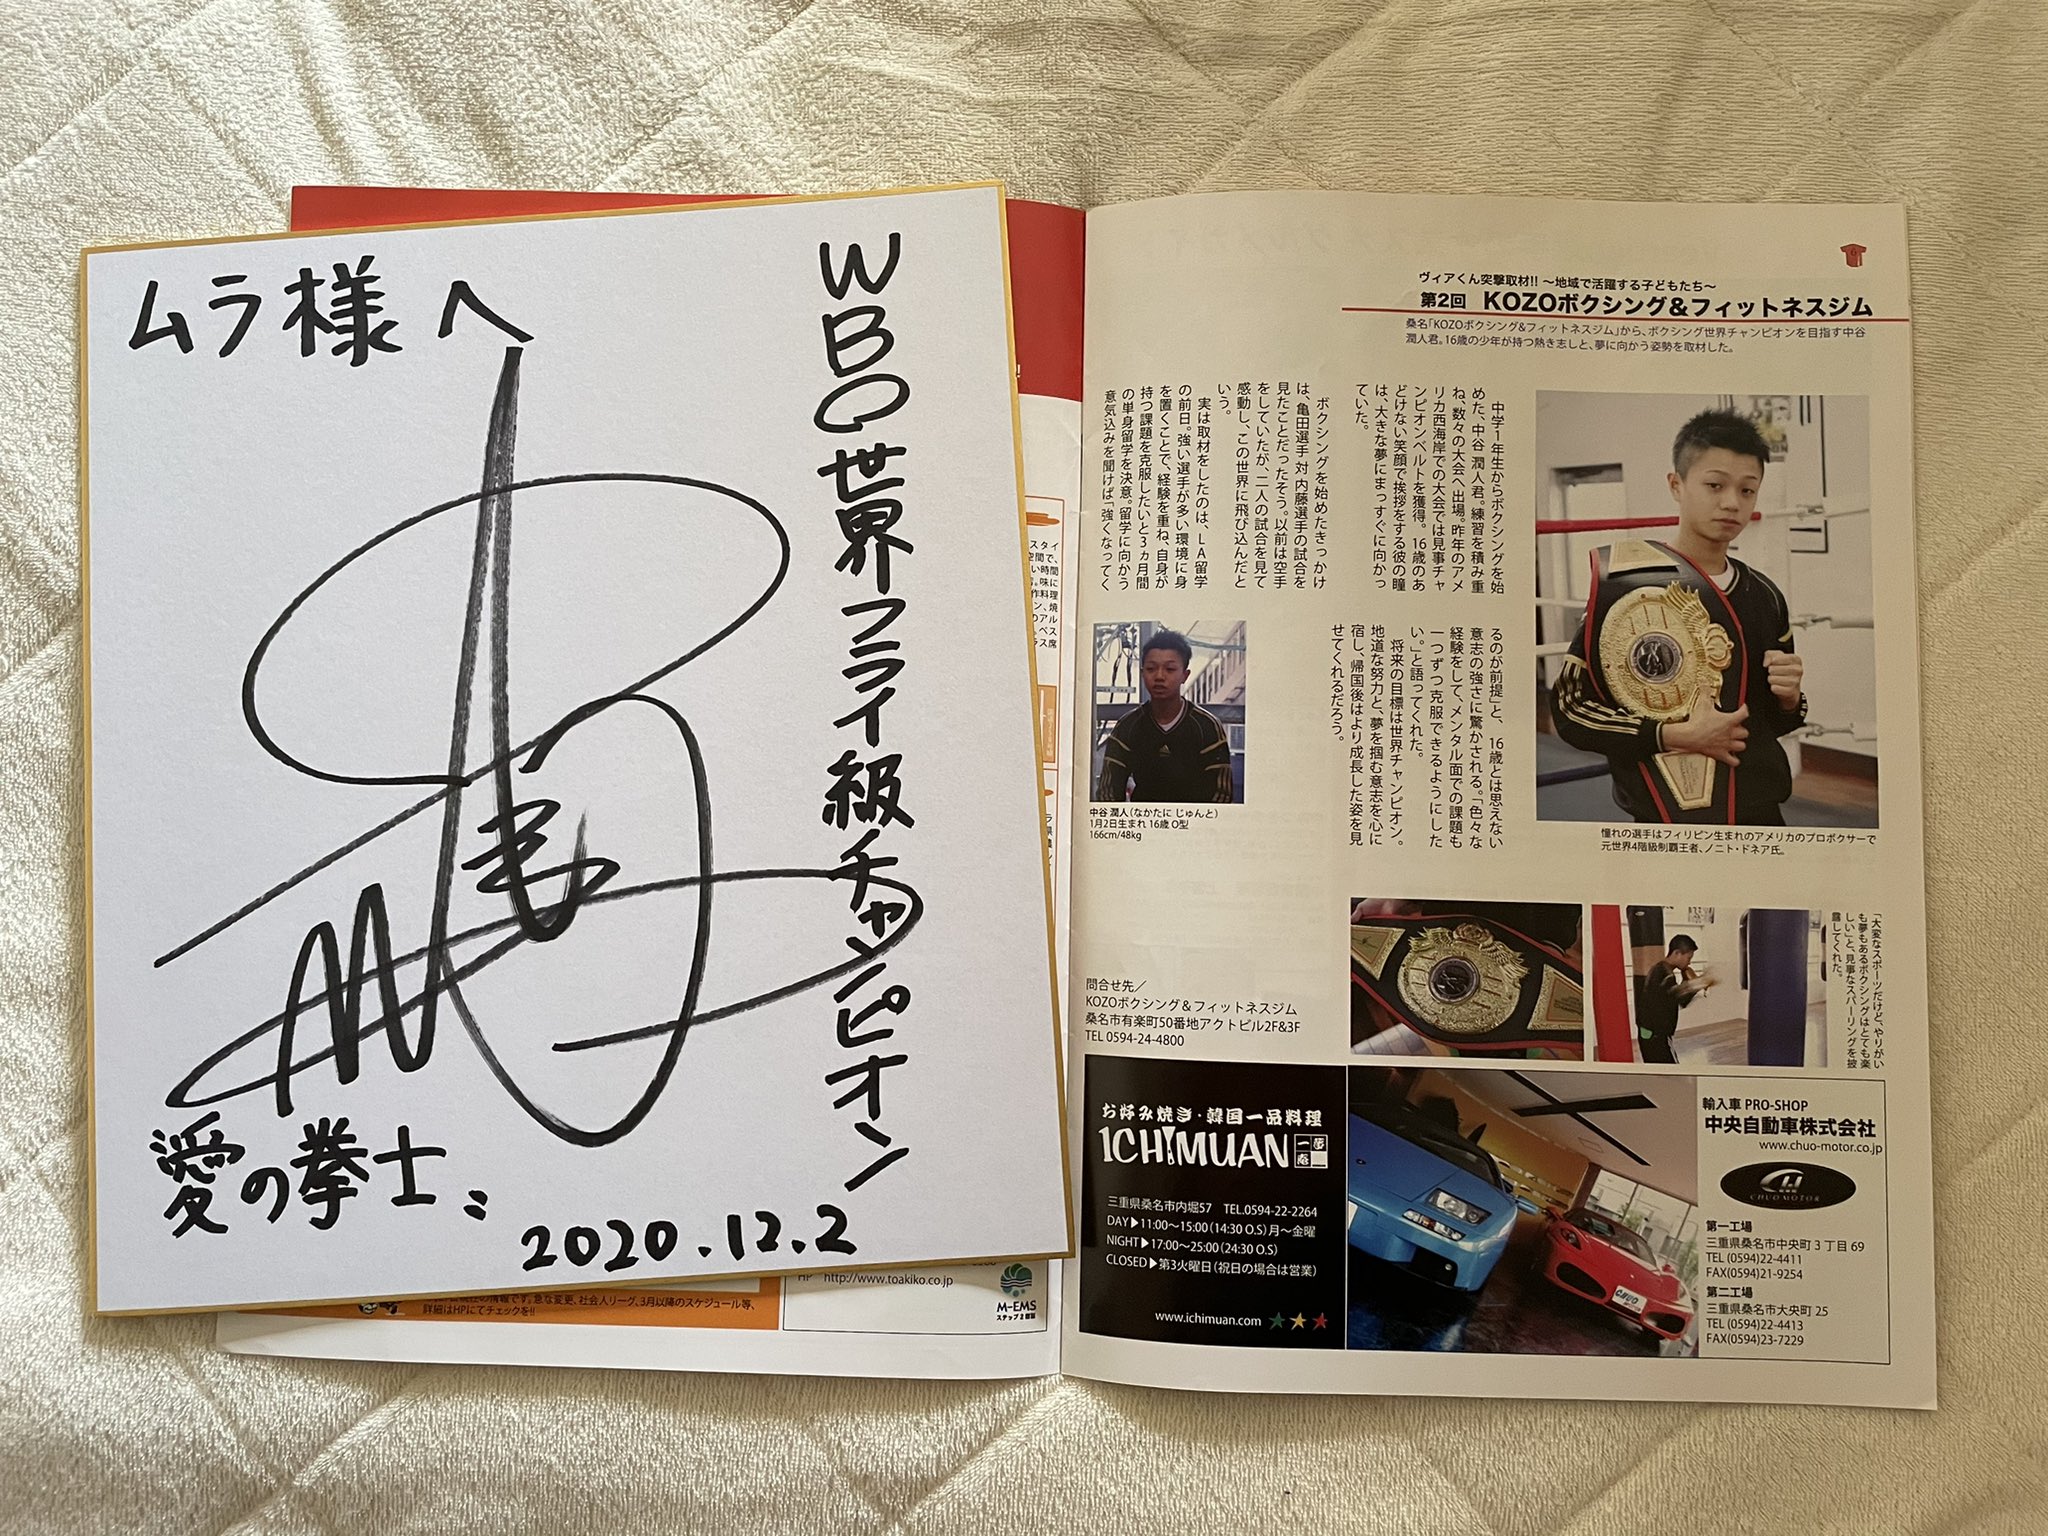 ムラ様へ
WBO世界フライ級チャンピオン
愛の拳士
2020.12.2
スタイ
空間で、
い時間
味に
作料理
ン、焼
のアル
ベス
ラス席
HP http://www.toakiko.co.jp
の情報です。急な変更、社会人リーグ、3月以降のスケジュール等、
詳細はHPにてチェックを!!
M-EMS
ステップ2認証
ヴィアくん突撃取材!! ～地域で活躍する子どもたち～
第2回 KOZOボクシング&フィットネスジム
桑名「KOZOボクシング&フィットネスジム」から、ボクシング世界チャンピオンを目指す中谷
潤人君。16歳の少年が持つ熱き志しと、夢に向かう姿勢を取材した。
中学1年生からボクシングを始
めた、中谷 潤人君。練習を積み重
ね、数々の大会へ出場。昨年のアメ
リカ西海岸での大会では見事チャ
ンピオンベルトを獲得。16歳のあ
どけない笑顔で挨拶をする彼の瞳
は、大きな夢にまっすぐに向かっ
ていた。
ボクシングを始めたきっかけ
は、亀田選手 対 内藤選手の試合を
見たことだったそう。以前は空手
をしていたが、二人の試合を見て
感動し、この世界に飛び込んだと
いう。
実は取材をしたのは、LA留学
の前日。強い選手が多い環境に身
を置くことで、経験を重ね、自身が
持つ課題を克服したいと3ヵ月間
の単身留学を決意。留学に向かう
意気込みを聞けば「強くなってく
るのが前提」と、16歳とは思えない
意志の強さに驚かされる。「色々な
経験をして、メンタル面での課題も
一つずつ克服できるようにした
い。」と語ってくれた。
将来の目標は世界チャンピオン。
地道な努力と、夢を掴む意志を心に
宿し、帰国後はより成長した姿を見
せてくれるだろう。
中谷 潤人(なかたに じゅんと)
1月2日生まれ 16歳 O型
166cm/48kg
憧れの選手はフィリピン生まれのアメリカのプロボクサーで
元世界4階級制覇王者、ノニト・ドネア氏。
「大変なスポーツだけど、やりがい
も夢もあるボクシングはとても楽
しい」と、見事なスパーリングを披
露してくれた。
問合せ先／
KOZOボクシング&フィットネスジム
桑名市有楽町50番地アクトビル2F&3F
TEL 0594-24-4800
お好み焼き・韓国一品料理
ICHIMUAN
三重県桑名市内堀57 TEL.0594-22-2264
DAY▶11:00～15:00(14:30 O.S)月～金曜
NIGHT▶17:00～25:00(24:30 O.S)
CLOSED▶第3火曜日(祝日の場合は営業)
www.ichimuan.com
輸入車 PRO-SHOP
中央自動車株式会社
www.chuo-motor.co.jp
CHUO MOTOR
第一工場
三重県桑名市中央町3丁目69
TEL (0594)22-4411
FAX(0594)21-9254
第二工場
三重県桑名市大央町25
TEL (0594)22-4413
FAX(0594)23-7229